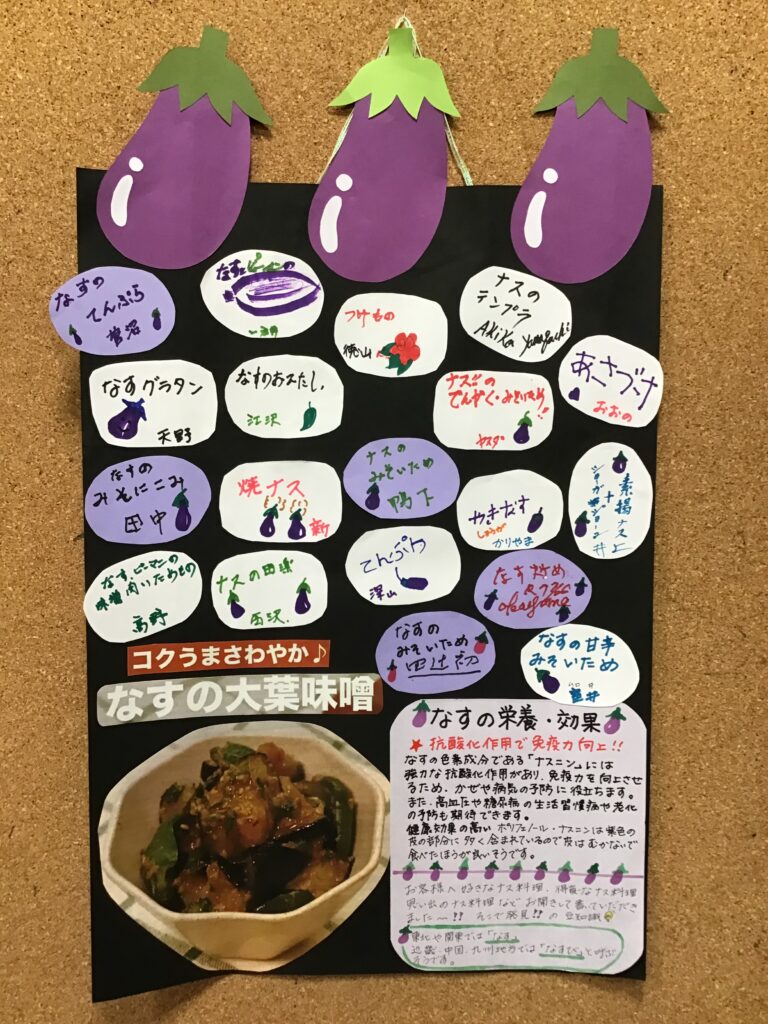 なすの
てんぷら
菅沼
なすとピーマンの
つけもの
徳山
ナスの
テンプラ
AKiKo Yamaguchi
あさづけ
おおの
なすグラタン
天野
なすのおひたし
江沢
ナスの
でんがく・みそいため!!
ヤスダ
なすの
みそにこみ
田中
焼ナス
新
ナスの
みそいため
鴨下
やきなす
しょうが
かりやま
素揚ナス
+
井上
なす、ピーマンの
味噌肉いためもの
高野
ナスの田楽
西沢.
てんぷら
深山
なす炒め
Okayama
なすの
みそいため
田辺
なすの甘辛
みそいため
コクうまさわやか♪
なすの大葉味噌
なすの栄養・効果
★ 抗酸化作用で免疫力向上!!
なすの色素成分である「ナスニン」には
強力な抗酸化作用があり、免疫力を向上させ
るため、かぜや病気の予防に役立ちます。
また、高血圧や糖尿病の生活習慣病や老化
の予防も期待できます。
健康効果の高いポリフェノール・ナスニンは紫色の
皮の部分に多く含まれているので皮はむかないで
食べたほうが良いそうです。
お客様へ好きなナス料理、得意なナス料理
思い出のナス料理などお聞きして書いていただき
ました〜!! そこで発見!!の豆知識
東北や関東では「なす」
近畿・中国・九州地方では「なすび」と呼ぶ
そうです。